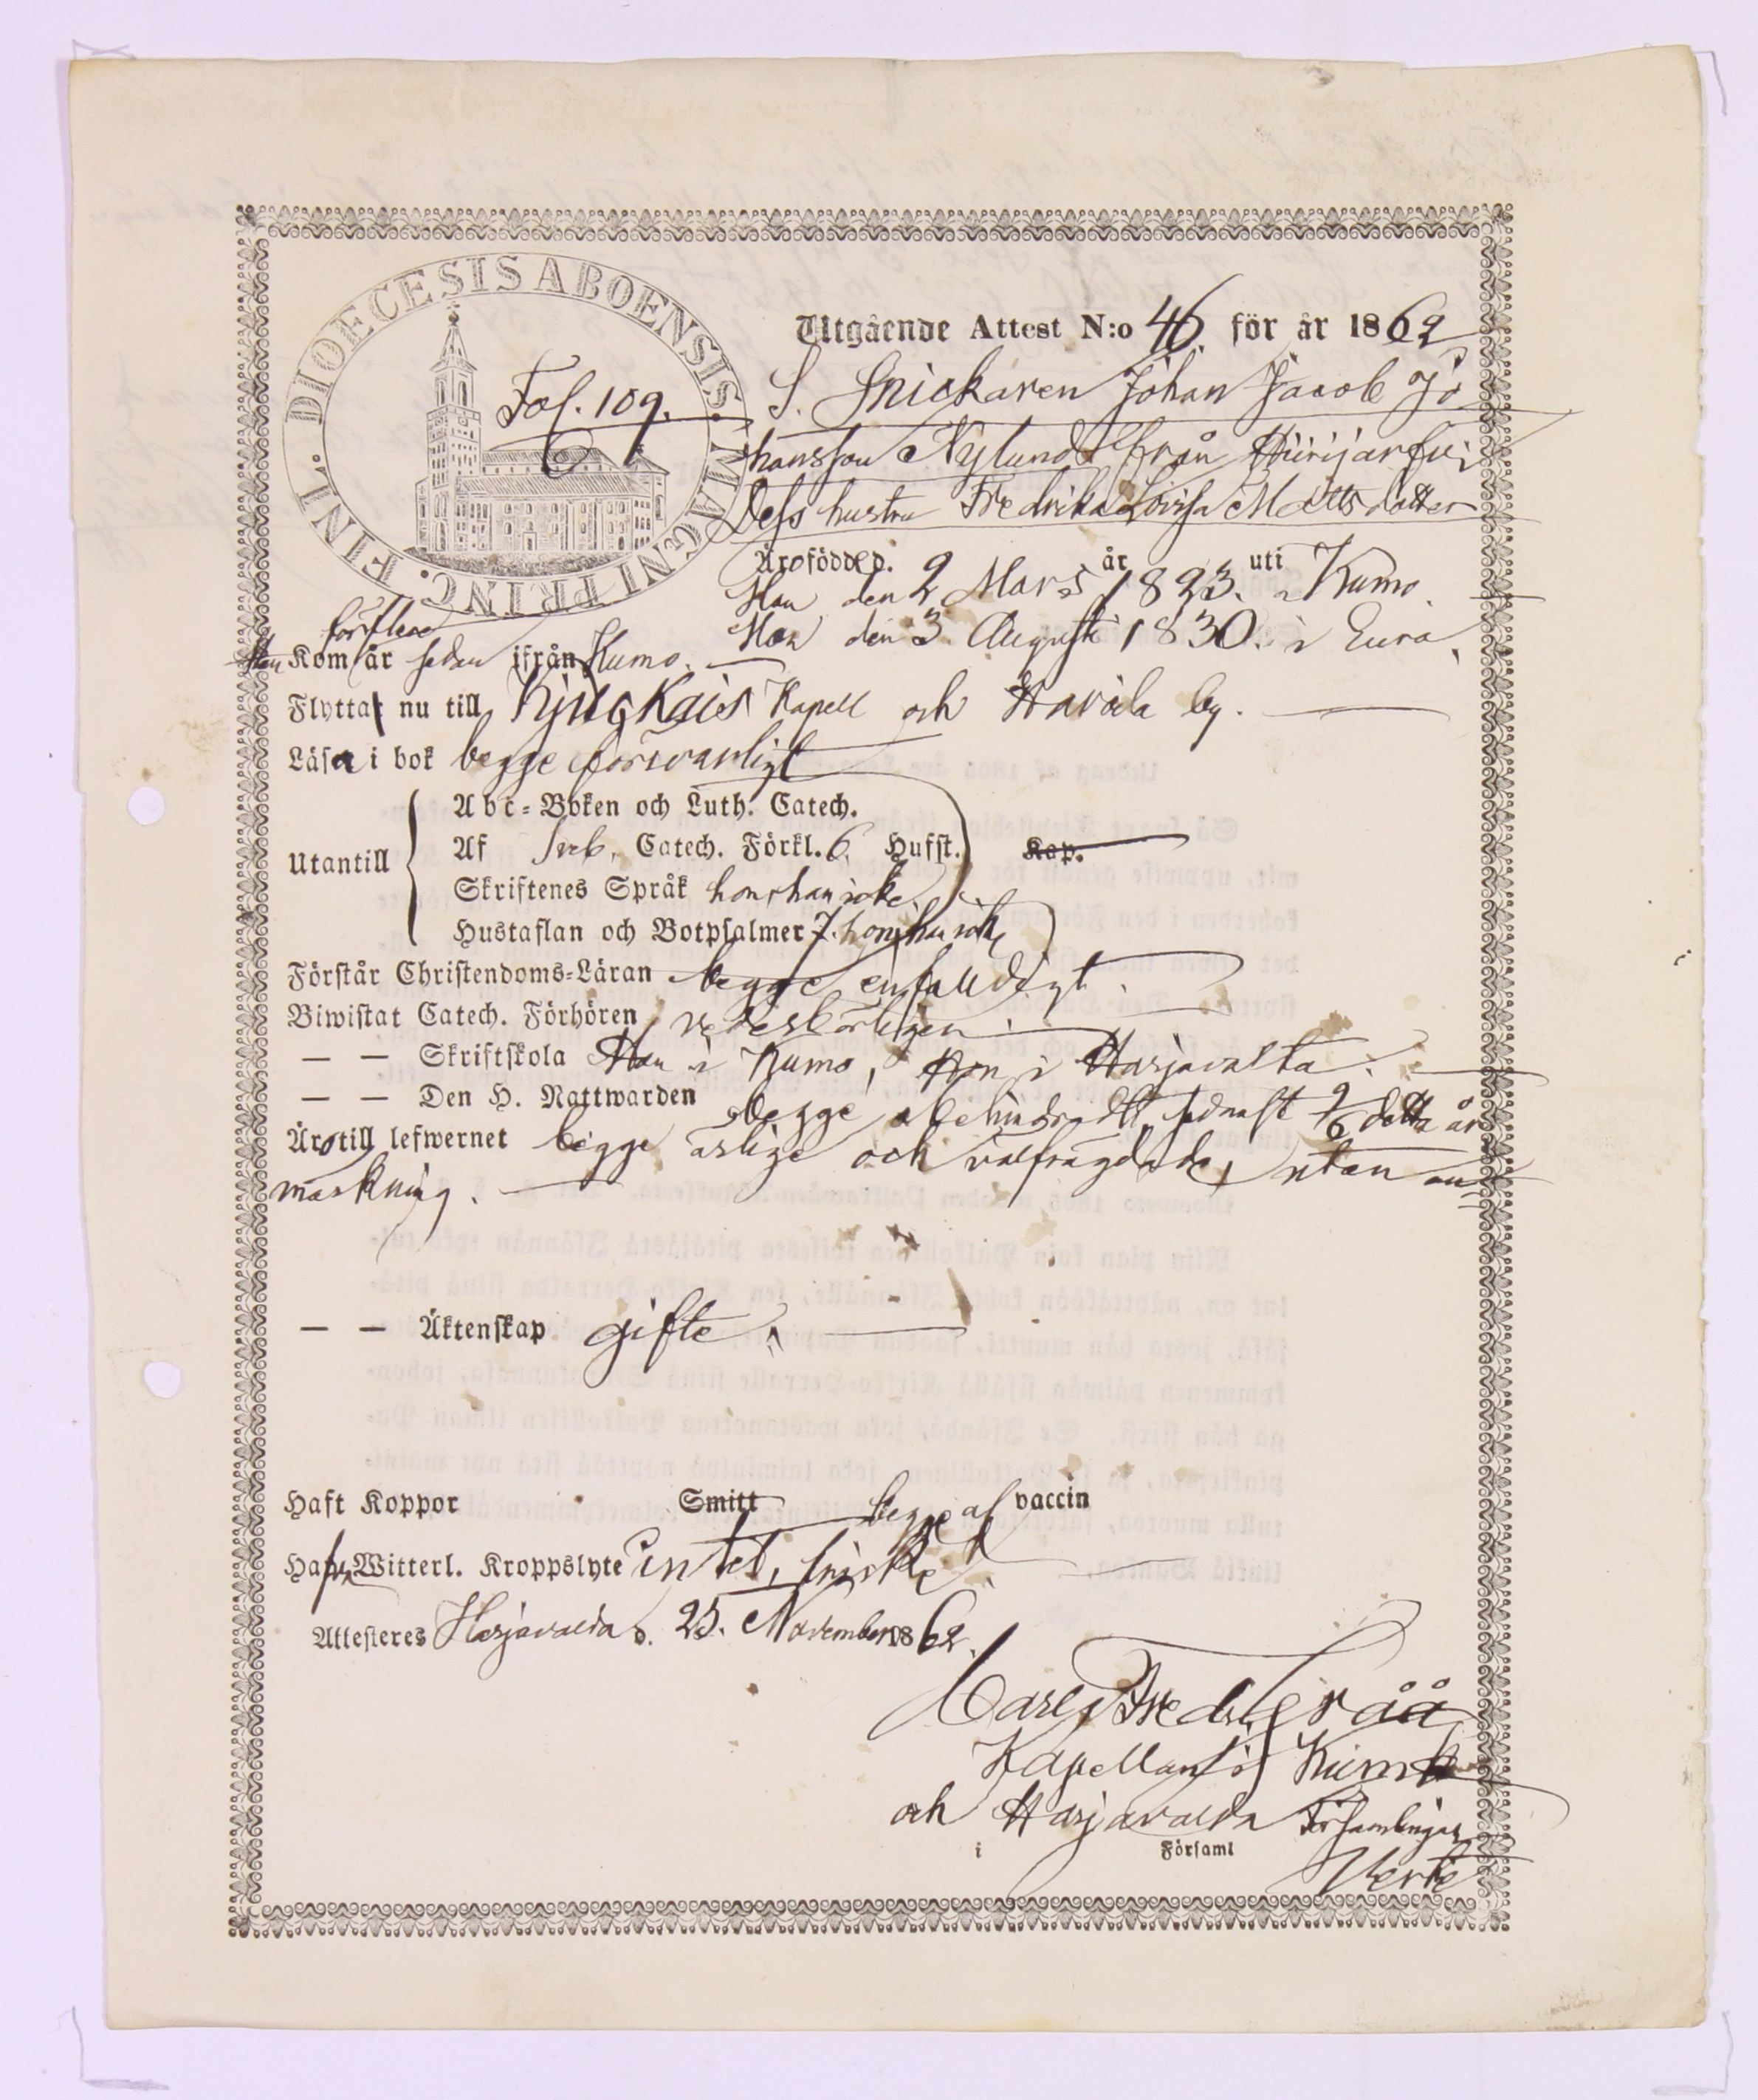 DIOECESIS ABOENSIS. MAGNI PRINC. FINL.
Fol. 109.
Utgående Attest N:o 46. för år 1862
S. Snickaren Johan Jacob Jo
hansson Nylund från
Dess hustru Fredrika Lovisa Mattsdotter
Äro födde. år uti
Han den 2 Mars 1823. i Kumo.
Hon den 3. Augusti 1830. i Eura.
för flere
Han Kom år sedan ifrån Kumo.
Flytta nu till Kjulo Kapell och Harola by.
Läsa i bok begge försvarligt
Abc-Boken och Luth. Catech.
Utantill
Af Sveb. Catech. Förkl. 6. Hufst. Kap.
Skriftenes Språk hon, han icke
Hustaflan och Botpsalmer 7. hon, han icke
Förstår Christendoms-Läran begge enfaldigt.
Biwistat Catech. Förhören vederbörligen.
— — Skriftskola Han i Kumo, Hon i Harjavalta.
— — Den H. Nattwarden begge obehindradt, sednast 9/6 detta år
Äro till lefwernet begge ärlige och välfrägdade, utan an
märkning.
— — Äktenskap gifte.
Haft Koppor Smitt begge af vaccin
Hafva Witterl. Kroppslyte intet, friske.
Attesteres Harjavalda d. 25. November 1862.
Carl Fredr. Gråå
Kapellan i Kumo
och Harjavalda Församlingar
i Församl